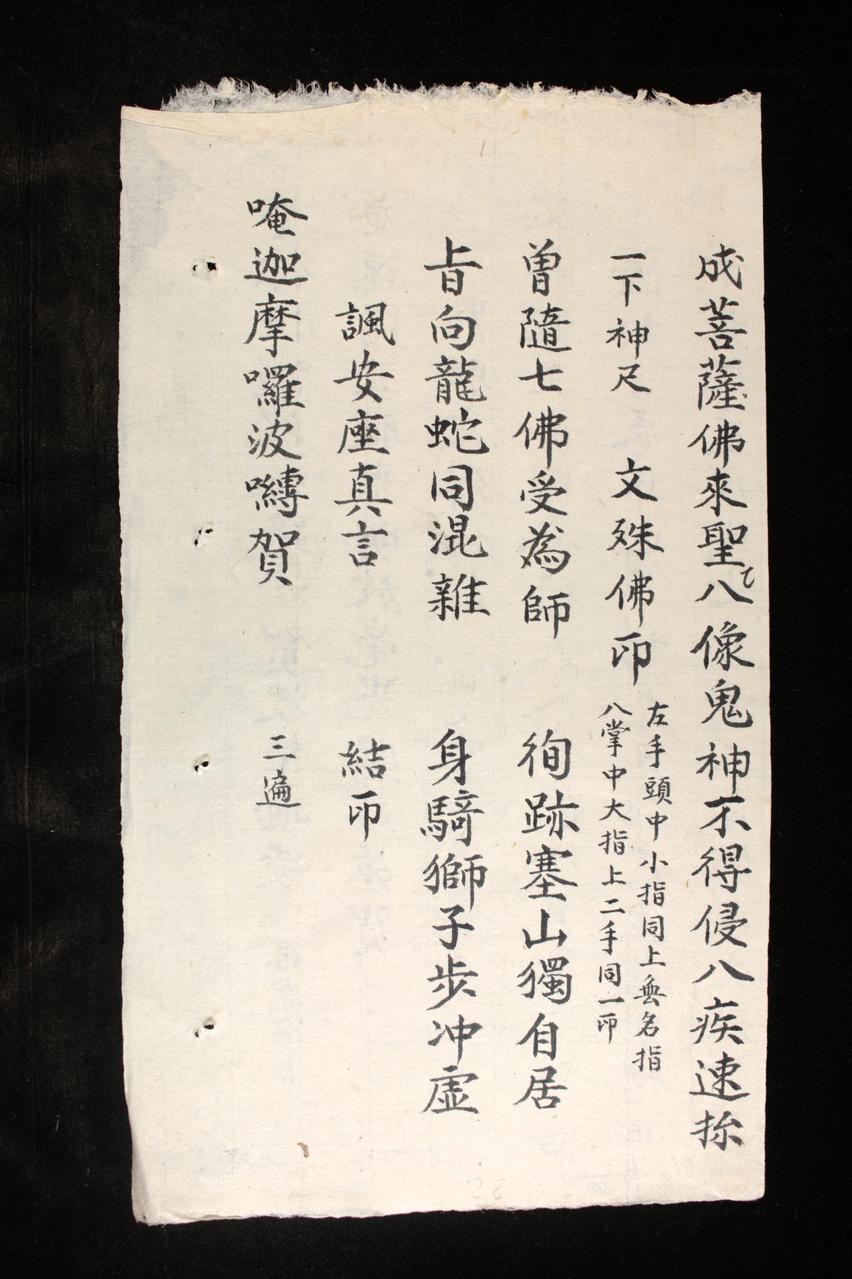 成菩薩佛來聖八像鬼神不得侵八疾速
一下神尺 文殊佛印
左手頭中小指同上無名指
八掌中大指上二手同一印
曾隨七佛受為師 徇跡塞山獨自居
㫖向龍蛇同混雜 身騎獅子步冲虛
諷安座真言 結印
唵迦摩囉波嚩賀 三遍